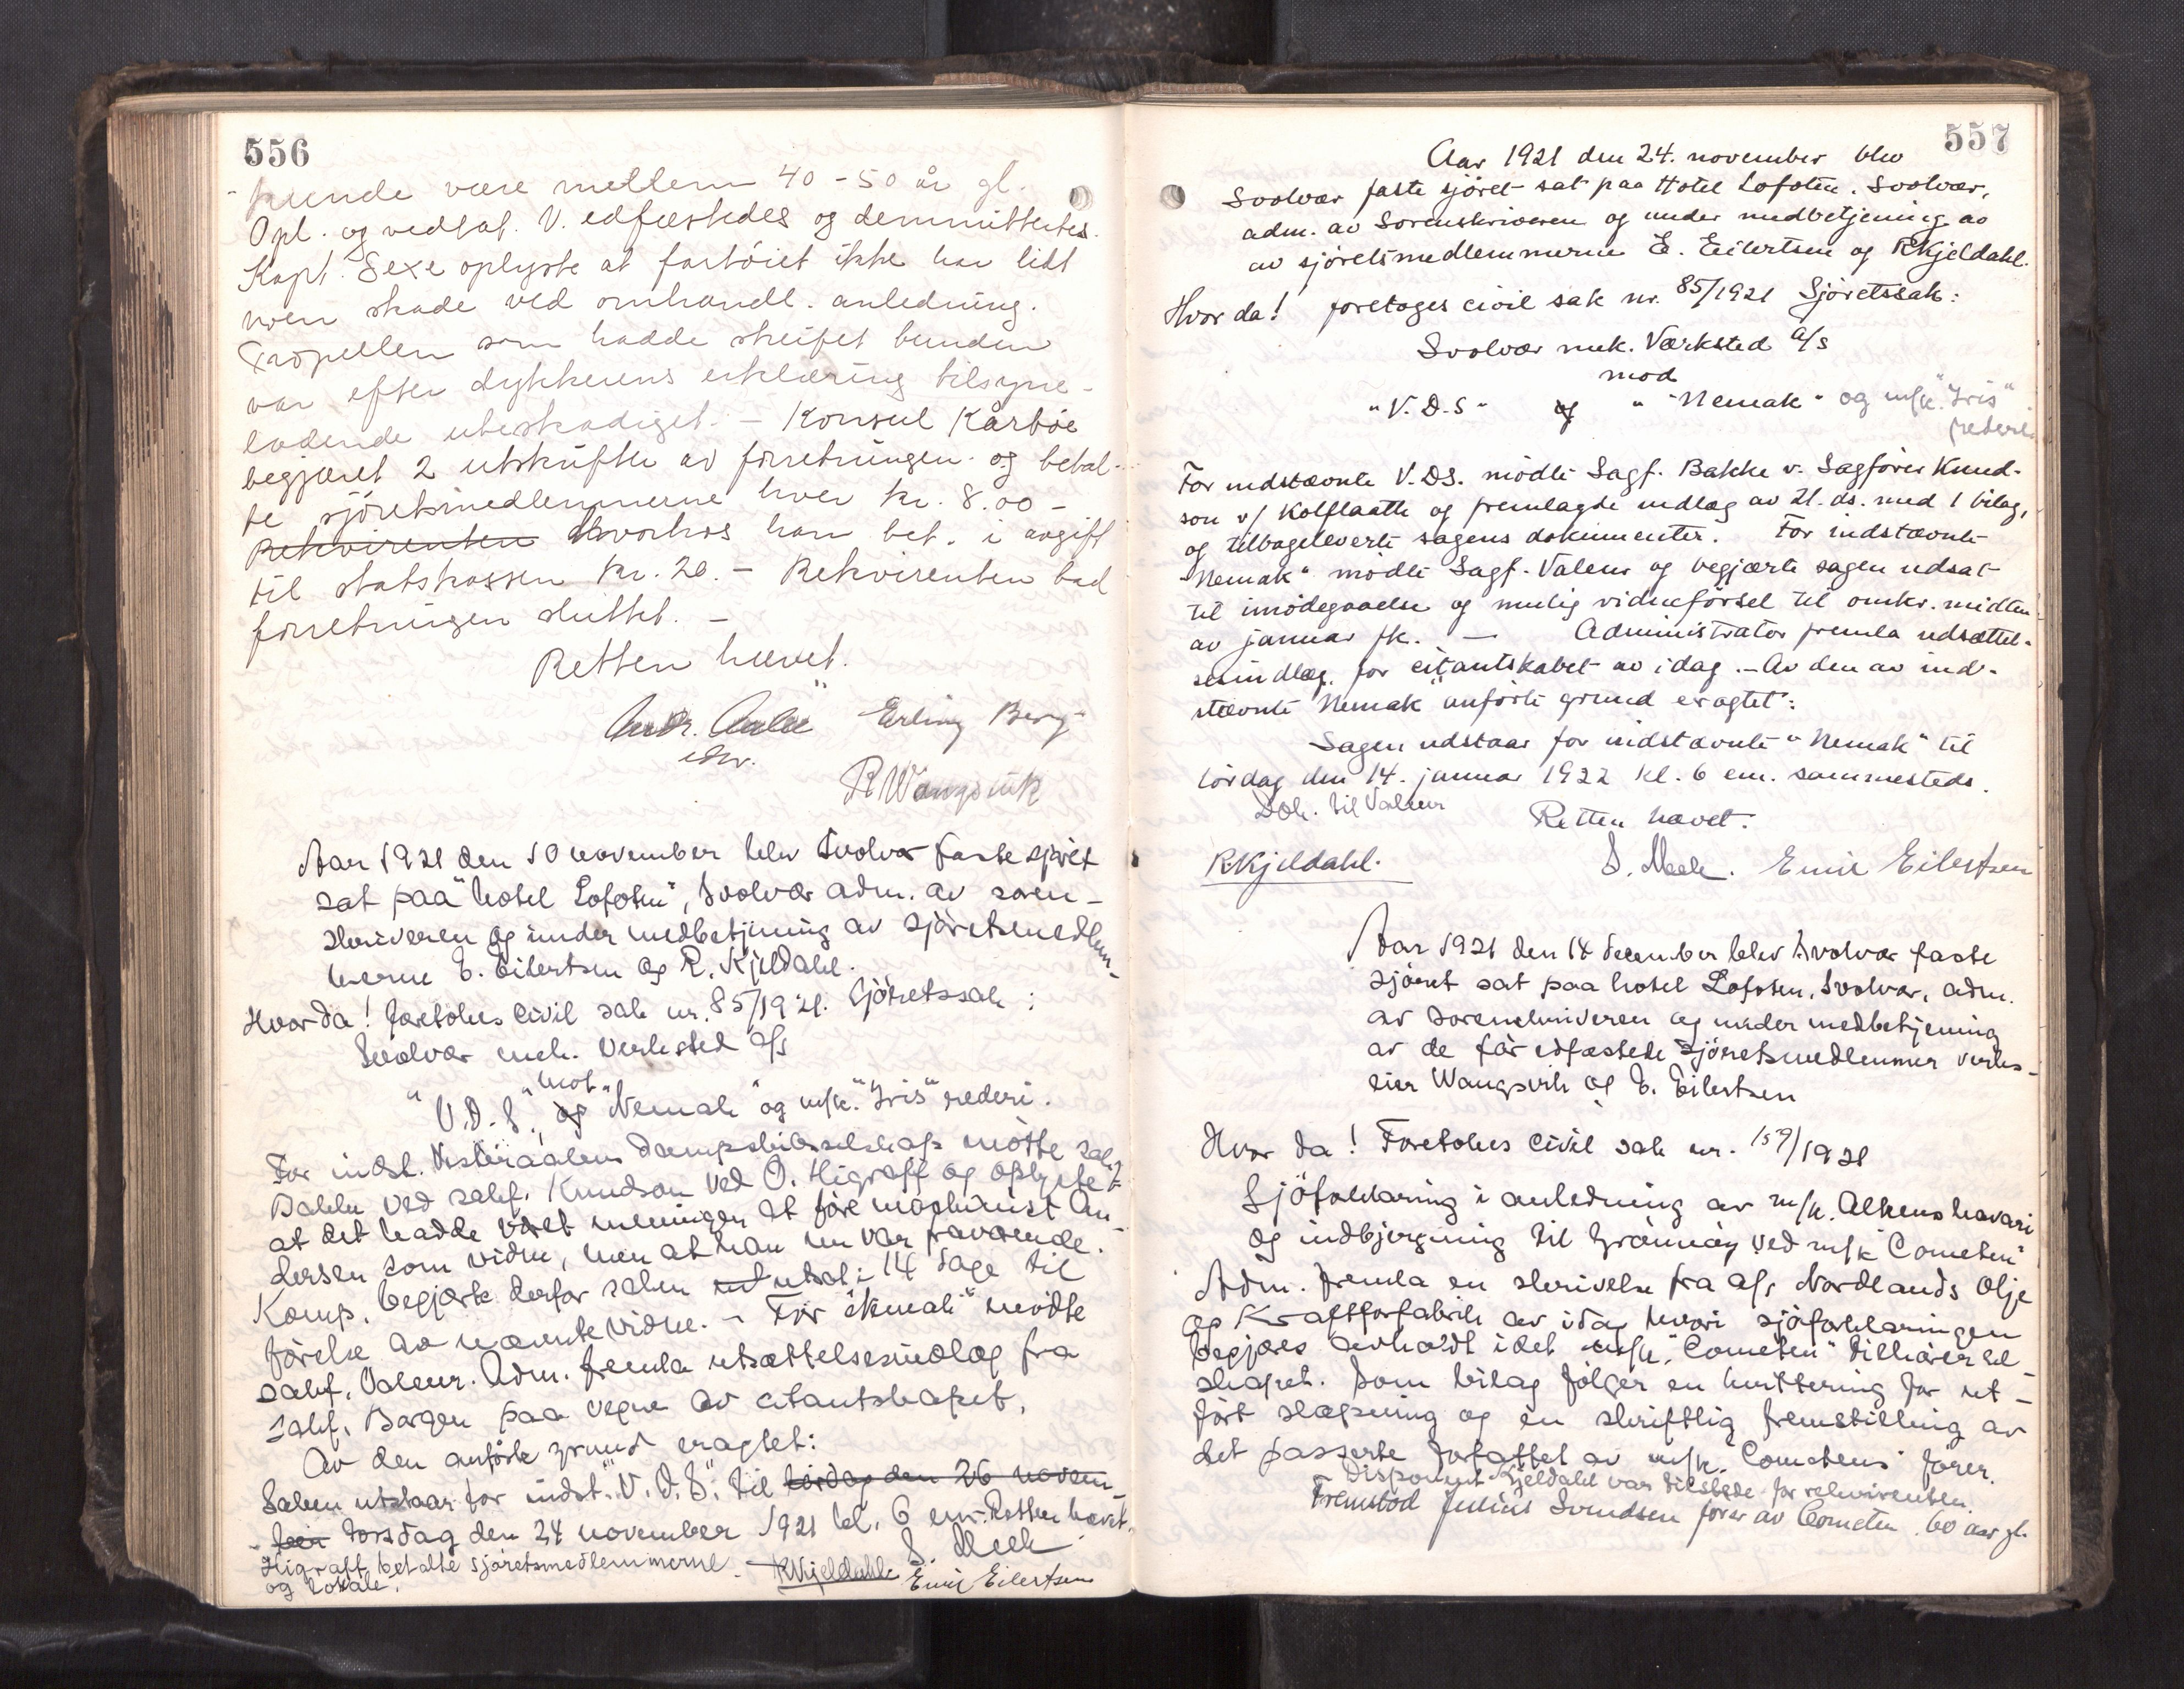 556
kunde være mellem 40-50 år gl.
Opl. og vedtat. V. edfæstedes og demmittertes.
Kapt. Sexe oplyste at fartöiet ikke har lidt
noen skade ved omhandl. anledning.
Propellen som hadde streifet bunden
var efter dykkerens erklæring tilsyne-
ladende ubeskadiget. - Konsul Kårböe
begjæret 2 utskrifter av forretningen og betal-
te sjöretsmedlemmerne hver kr. 8.00 -
Rekvirenten hvorhos han bet. i avgift
til statskassen kr. 20. - Rekvirenten bad
forretningen sluttet. -
Retten hævet.
Erling Berg
R Wangsvik
Aar 1921 den 10 november blev Svolvær faste sjöret
sat paa "hotel Lofoten", Svolvær adm. av soren-
skriveren og under medbetjening av sjöretsmedlem-
merne E. Eilertsen og R. Kjeldahl.
Hvor da! foretokes civil sak nr. 85/1921. Sjöretssak:
Svolvær mek. Verksted A/S
mot
"V.D.S." og "Nemak" og m/k. "Iris" rederi.
For indst. Vesteraalens Dampskibsselskap mötte sakf.
Bakke ved sakf. Knudson ved O. Higraff og oplyste
at det hadde været meningen at före maskinist An-
dersen som vidne, men at han nu var fraværende.
Komp. begjærte derfor saken ut utsat i 14 dage til
förelse av nævnte vidne. - For "Nemak" mödte
sakf. Valeur. Adm. fremla utsættelsesindlæg fra
sakf. Borgen paa vegne av citantskapet.
Av den anförte grund eragtet:
Saken utstaar for indst. "V.D.S." til lördag den 26 novem-
ber torsdag den 24 november 1921 kl. 6 em. Retten hævet.
Higraff betalte sjöretsmedlemmerne
og lokale. RKjeldahl S. Meek Emil Eilertsen
557
Aar 1921 den 24. november blev
Svolvær faste sjöret sat paa Hotel Lofoten. Svolvær,
adm. av Sorenskriveren og under medbetjening av
av sjöretsmedlemmerne E. Eilertsen og RKjeldahl.
Hvor da! foretoges civil sak nr. 85/1921 Sjöretssak:
Svolvær mek. Værksted A/S
mod
"V.D.S" og "Nemak" og m/k. "Iris"
rederi.
For indstævnte V.DS. mödte Sagf. Bakke v. Sagförer Knud-
son v/ Kolflaath og fremlagde indlæg av 21. ds. med 1 bilag,
og tilbageleverte sagens dokumenter. For indstævnte
"Nemak" mödte Sagf. Valeur og begjærte sagen udsat
til imödegaaelse og mulig vidneförsel til omkr. midten
av januar fk. - Administrator fremla udsættel-
sesindlæg for citantskabet av idag. - Av den av ind-
stævnte "Nemak" anförte grund eragtet:
Sagen udstaar for indstævnte "Nemak" til
lördag den 14. januar 1922 kl. 6 em. sammesteds.
Dok. til Valeur
Retten hævet.
RKjeldahl. S. Meek. Emil Eilertsen
Aar 1921 den 14 december blev Svolvær faste
sjöret sat paa hotel Lofoten, Svolvær, adm.
av sorenskriveren og under medbetjening
av de för edfæstede sjöretsmedlemmer verks-
eier Wangsvik og E. Eilertsen
Hvor da! Foretokes civil sak nr. 159/1921
Sjöforklaring i anledning av m/k. Alkens havari
og indbjergning til Grönnöy ved m/k "Cometen"
Adm. fremla en skrivelse fra A/S Nordlands Olje
og Kraftforfabrik av idag hvori sjöforklaringen
begjæres avholdt idet m/k. "Cometen" tilhörer sel-
skapet. Som bilag fölger en kvittering for ut-
fört slæpning og en skriftlig fremstilling av
det passerte forfattet av m/k. "Cometens" förer.
Disponent Kjeldahl var tilstede for rekvirenten.
Fremstod Julius Svendsen förer av Cometen, 60 aar gl.